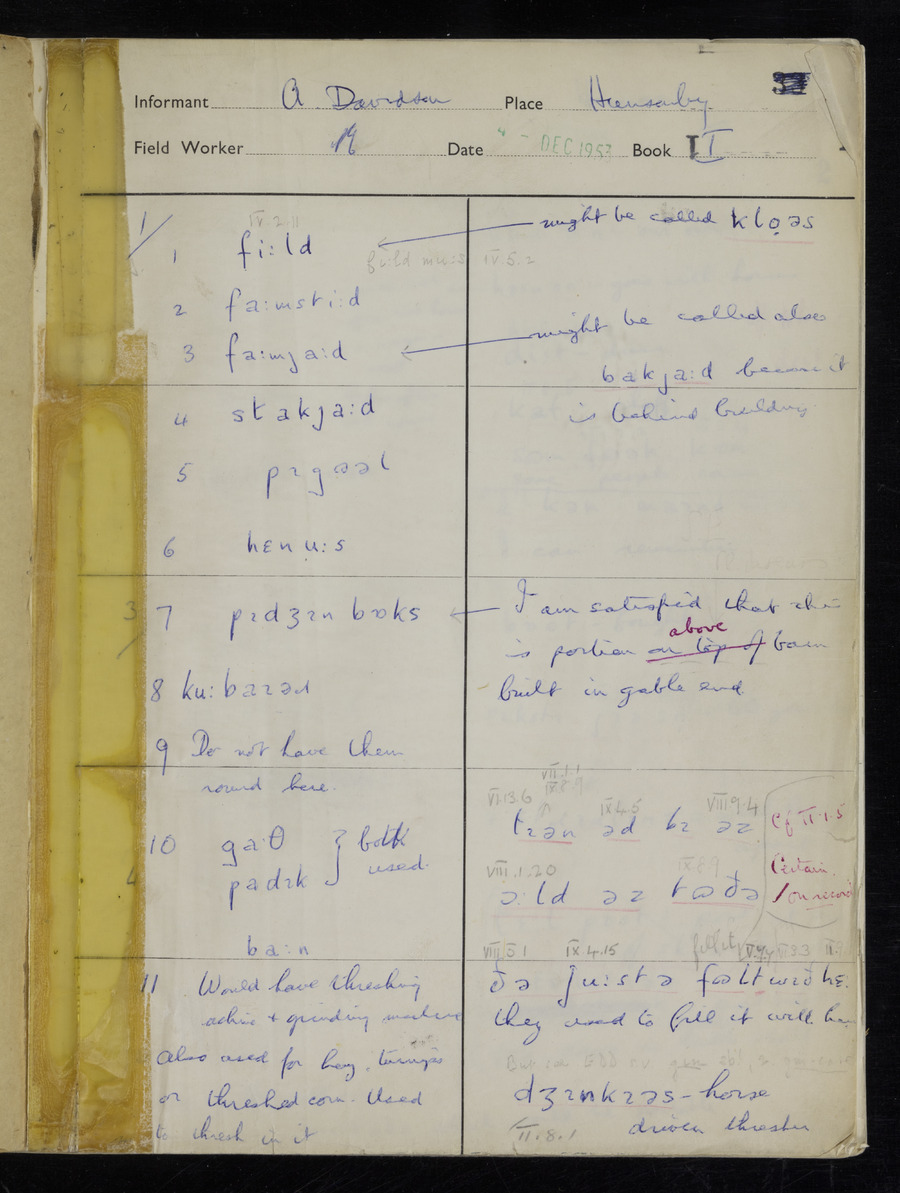 Informant A Davidson Place Hunsonby
Field Worker Date DEC 1953 Book I
1
IV.2.11
1 fi:ld
field mu:s IV.5.2
might be called klǫəs
2 fa:mstı:d
3 fa:mja:d
might be called also
bakja:d because it
4 stakja:d
is behind building
5 pɪgɔəl
6 hɛn u:s
3 7 pɪdʒɪn bɒks
I am satisfied that this
is portion on top of above barn
built in gable end.
8 ku:baɪəd
9 Do not have them
round here.
VII.1.1
VI.13.6 IX.8.9 IX.4.5 VIII 9.4
tɪən əd bɪ əz
Cf II.1.5
10 ga:θ } both
padɪk used.
VIII.1.20 IX 8 9
ɔ:ld əz tɒðə
Certain.
/on record
ba:n
VIII 5 1 IX.4.15
11 Would have threshing
ðə ju:stə fɒlt wɪð hɛ:
achine + grinding machine
they used to fill it with hay
also used for hay, turnips
or threshed corn. Used
dʒɪnkɪəs - horse
to thresh in it
II.8.1 driven thresher